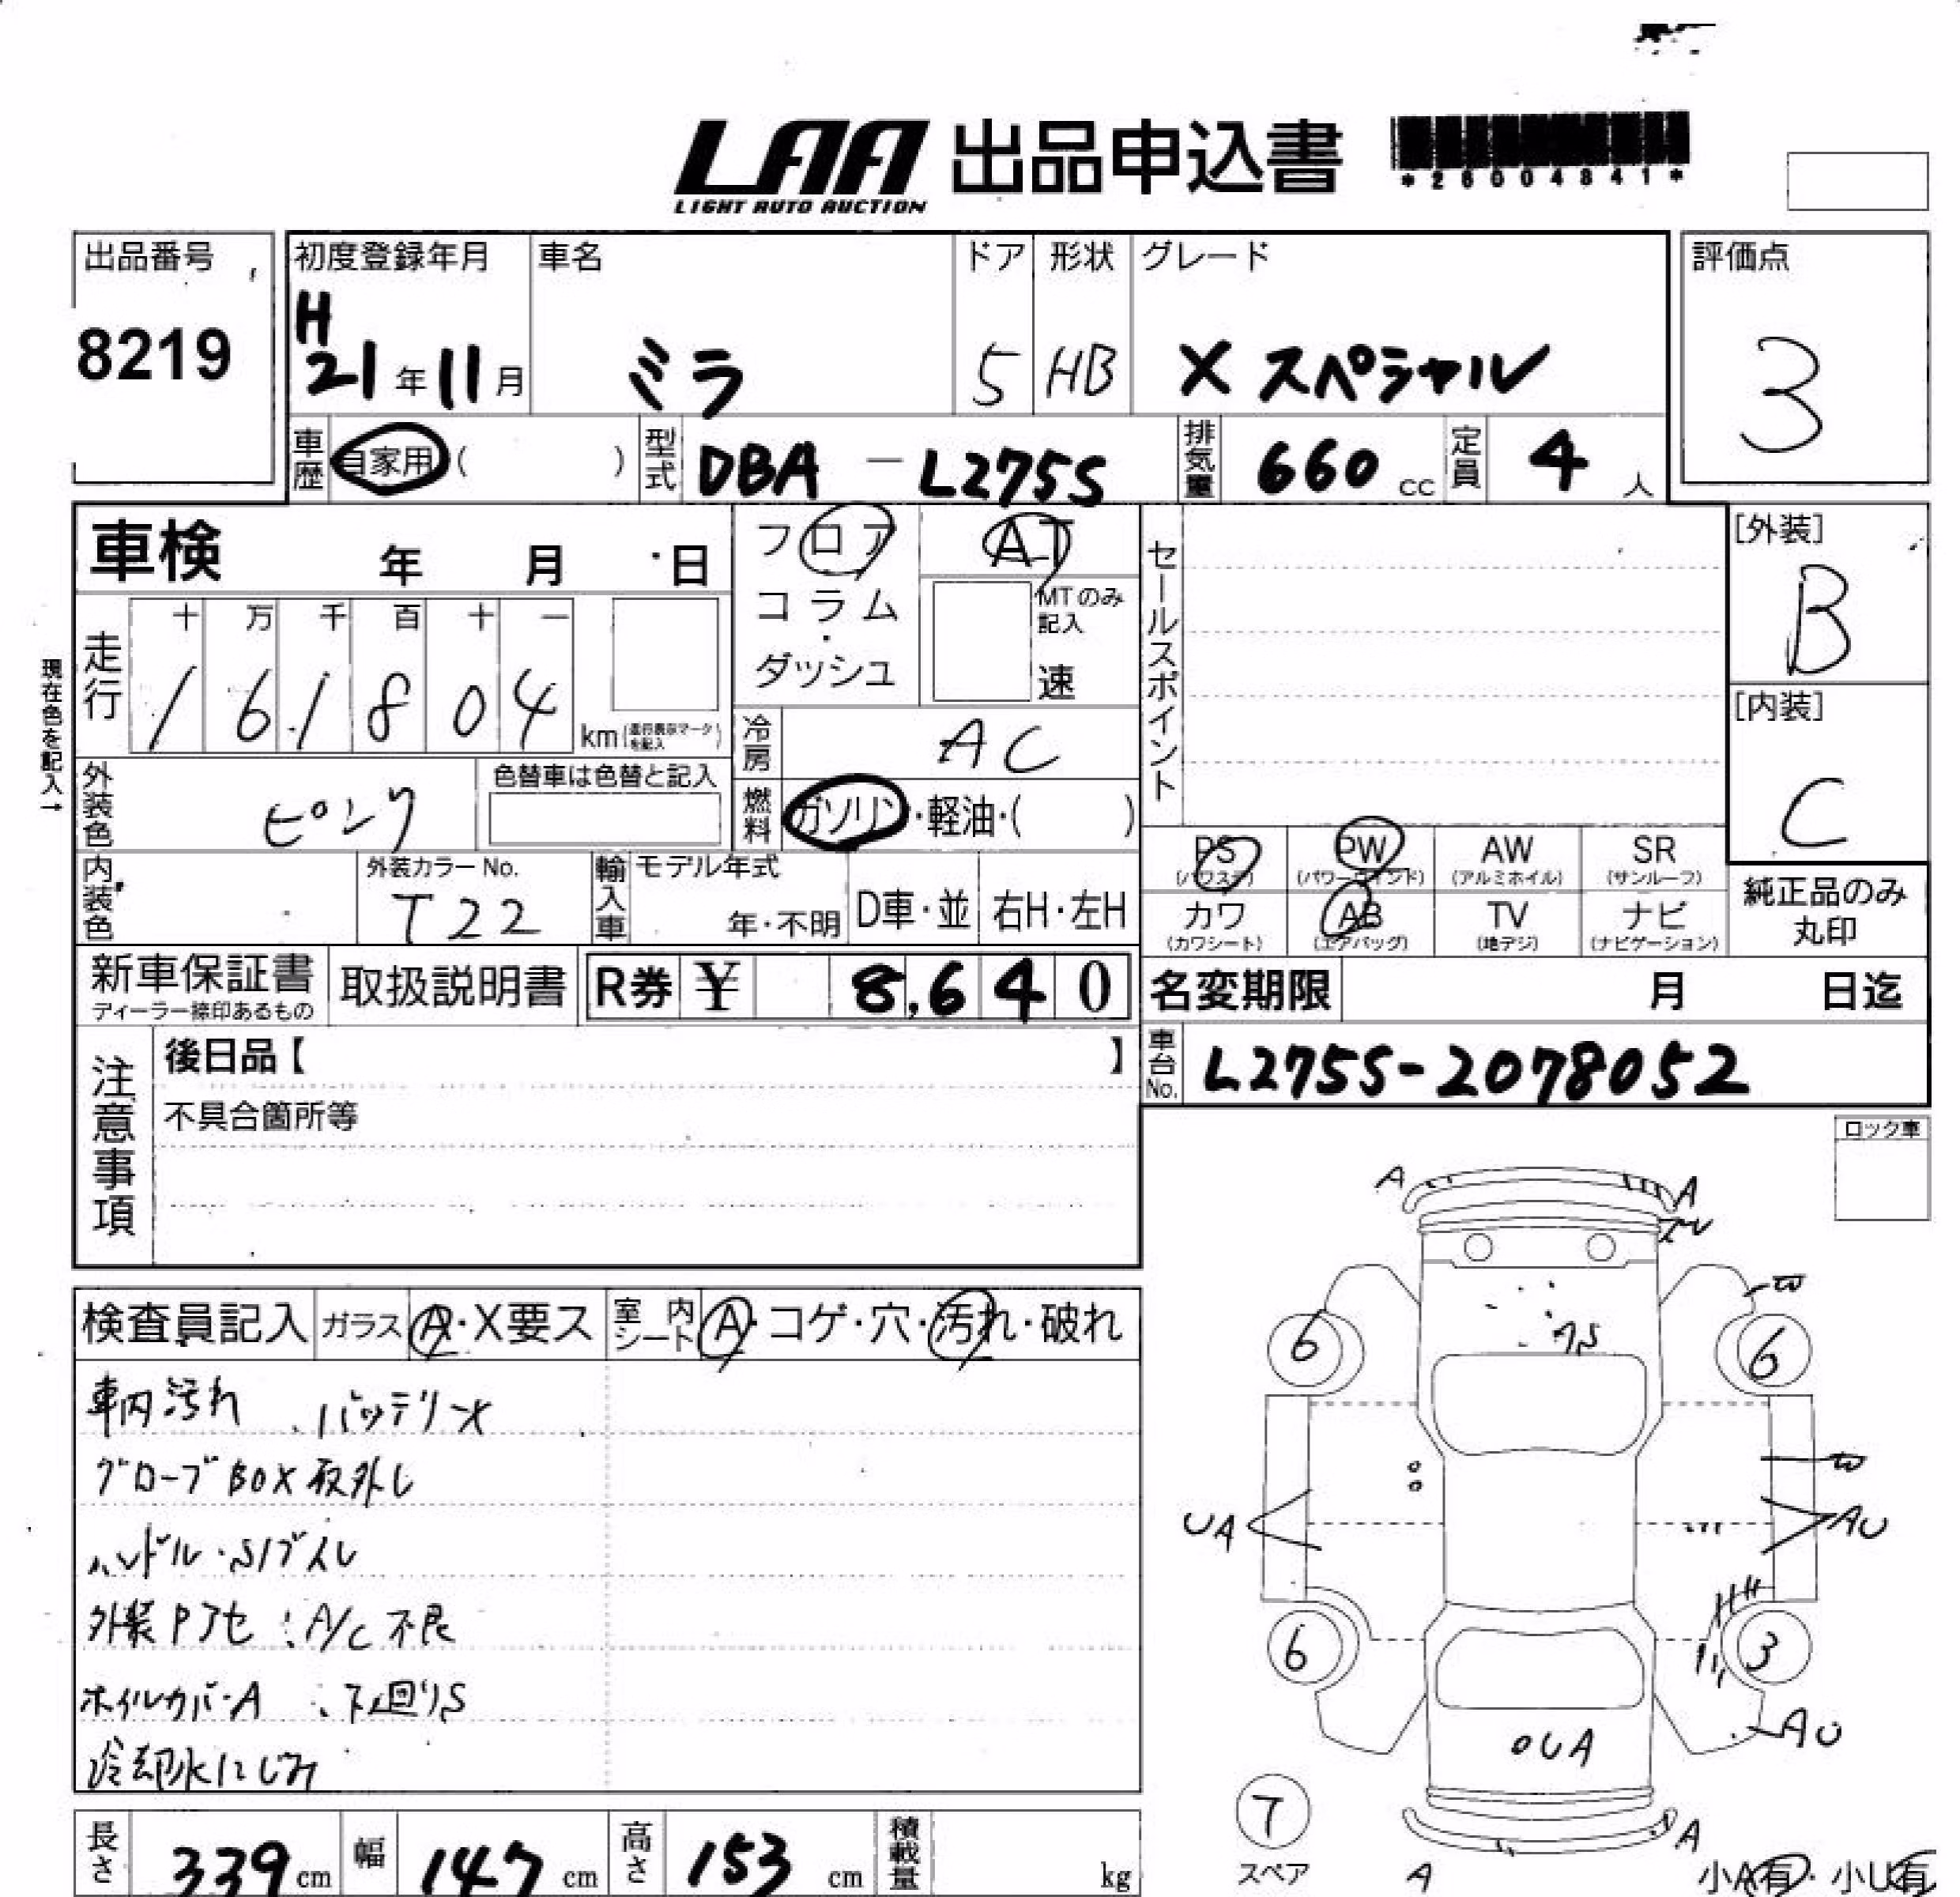 LAA 出品申込書
LIGHT AUTO AUCTION
*26004841*
出品番号
8219
初度登録年月
H
21年11月
車名
ミラ
ドア
5
形状
HB
グレード
X スペシャル
評価点
3
車歴 自家用 ( )
型式 DBA-L275S
排気量 660 cc
定員 4 人
車検 年 月 日
フロア
コラム
・
ダッシュ
AT
MTのみ
記入
速
セールスポイント
[外装]
B
[内装]
C
現在色を記入→
走行
十 万 千 百 十 一
1 6 1 8 0 4 km (走行表示マークを記入)
冷房 AC
外装色 ピンク
色替車は色替と記入
燃料 ガソリン・軽油・( )
内装色
外装カラーNo.
T22
輸入車
モデル年式
年・不明
D車・並
右H・左H
PS
(パワステ)
PW
(パワーウインド)
AW
(アルミホイル)
SR
(サンルーフ)
カワ
(カワシート)
AB
(エアバッグ)
TV
(地デジ)
ナビ
(ナビゲーション)
純正品のみ
丸印
新車保証書
ディーラー捺印あるもの
取扱説明書
R券 ¥ 8,640
名変期限 月 日迄
注意事項
後日品【 】
不具合箇所等
車台No. L275S-2078052
ロック車
検査員記入
ガラス A・X要ス
室内シート A・コゲ・穴・汚れ・破れ
車内汚れ 、バッテリーX
グローブBOX取外し
ハンドル・S/ブスレ
外装Pアセ :A/C不良
ホイルカバーA :下回りS
冷却水にじみ
A
A
W
AS
6
6
W
UA
AU
6
3
AU
UA
T
スペア
A
A
小A有・小U有
長さ 339 cm
幅 147 cm
高さ 153 cm
積載量 kg